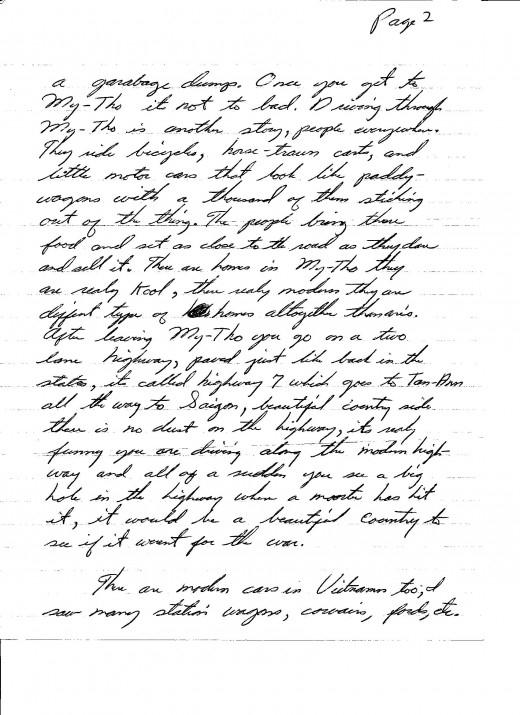 Page 2
a garabage dumps. Once you get to
My-Tho it not to bad. Driving through
My-Tho is another story, people everywhere.
They ride bicycles, horse-trawn carts, and
little motor cars that look like paddy-
wagons with a thousand of them sticking
out of the thing. The people bring there
food and set as close to the road as they dare
and sell it. There are homes in My-Tho they
are realy Kool, there realy modern they are
diffent type of homes altogether than ours.
After leaving My-Tho you go on a two
lane highway, paved just like back in the
states, its called highway 7 which goes to Tan-Ann
all the way to Saigon, beautiful country side
there is no dust on the highway, its realy
funny you are driving along the modern high-
way and all of a sudden you see a big
hole in the highway where a has hit
it, it would be a beautiful country to
see if it wasnt for the war.
There are modern cars in Vietnam too, I
saw many station wagons, corvairs, fords, etc.